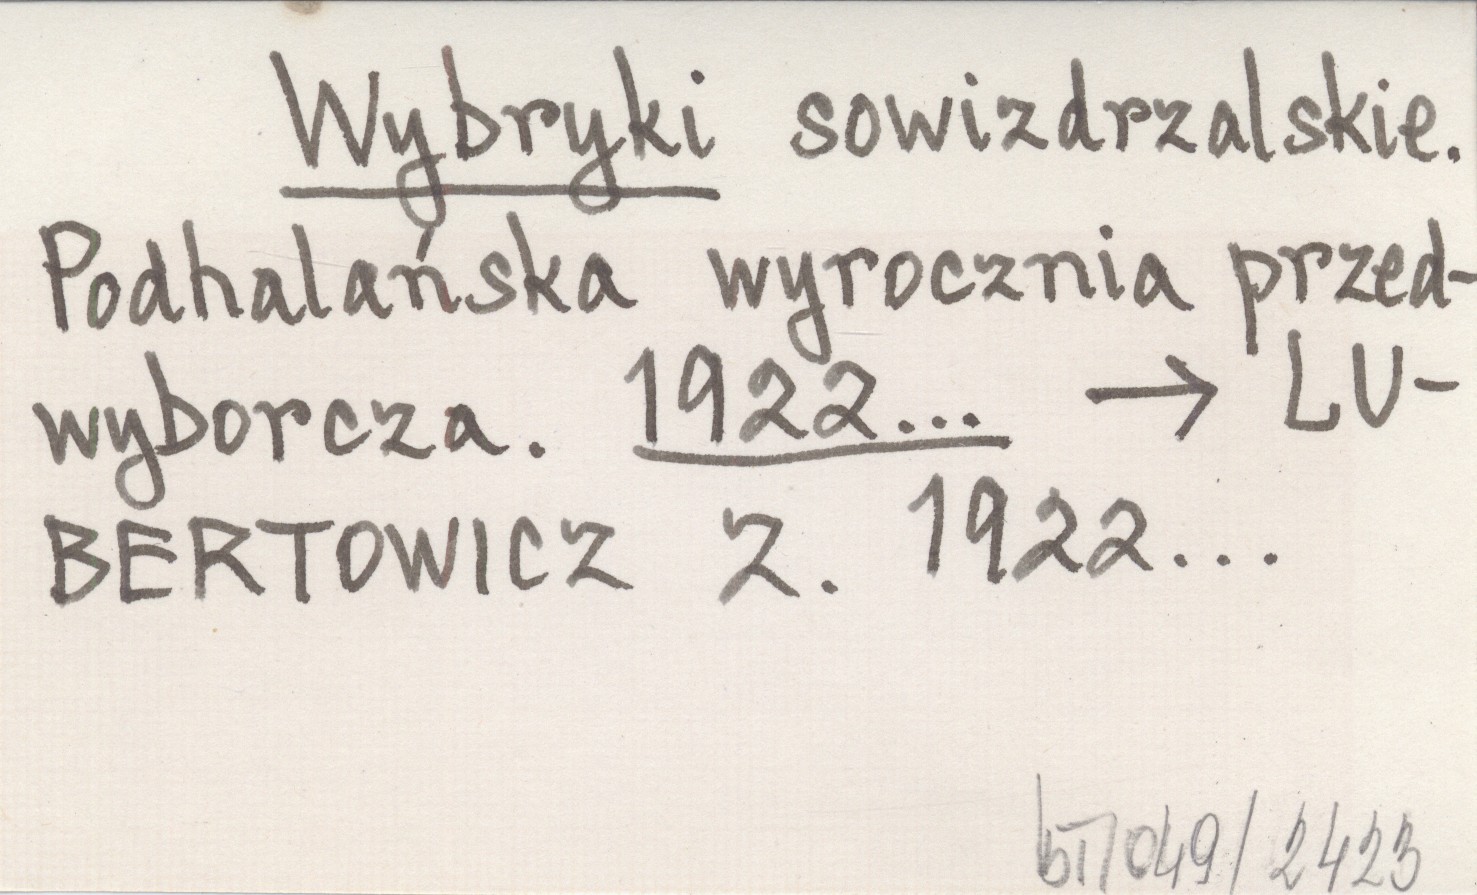 Wybryki sowizdrzalskie.
Podhalańska wyrocznia przed-
wyborcza. 1922... → LU-
BERTOWICZ Z. 1922...
049/2423